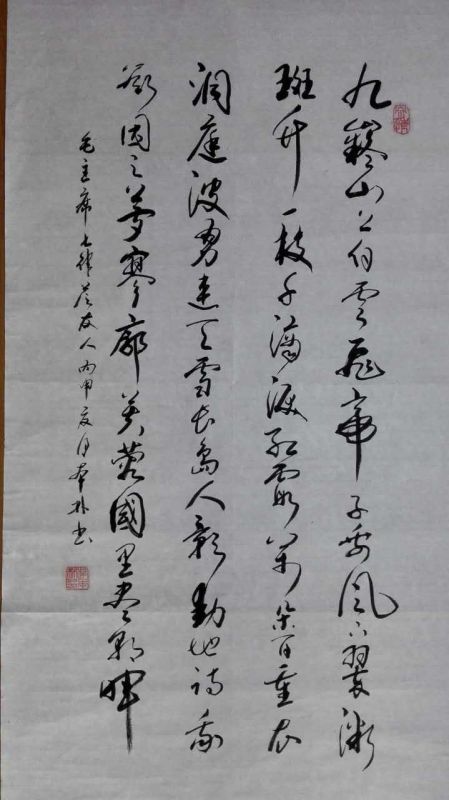 九嶷山上白雲飛帝子乘風下翠微
斑竹一枝千滴淚紅霞萬朵百重衣
洞庭波涌連天雪長島人歌動地詩我
欲因之夢寥廓芙蓉國里盡朝暉
毛主席七律答友人丙申夏月书